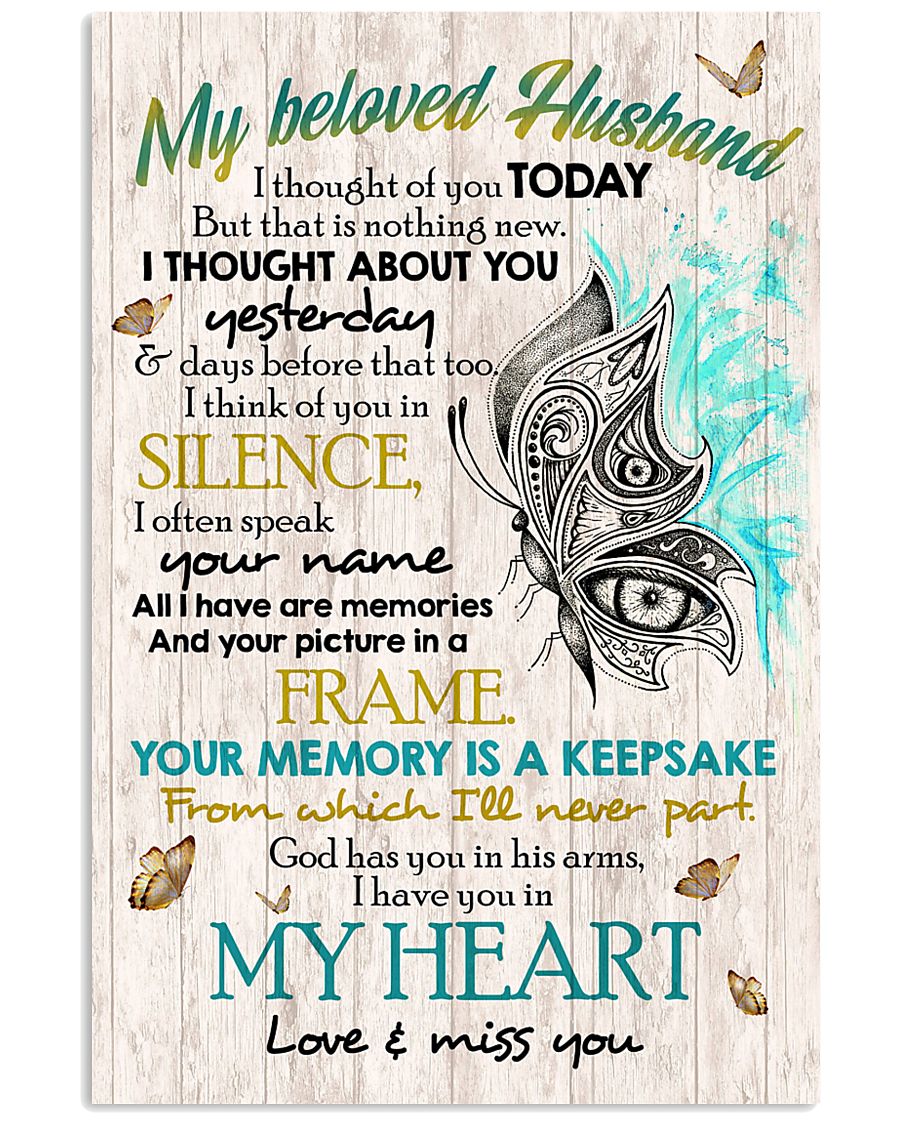 My beloved Husband
I thought of you TODAY
But that is nothing new.
I THOUGHT ABOUT YOU
yesterday
& days before that too.
I think of you in
SILENCE,
I often speak
your name
All I have are memories
And your picture in a
FRAME.
YOUR MEMORY IS A KEEPSAKE
From which I'll never part.
God has you in his arms,
I have you in
MY HEART
Love & miss you